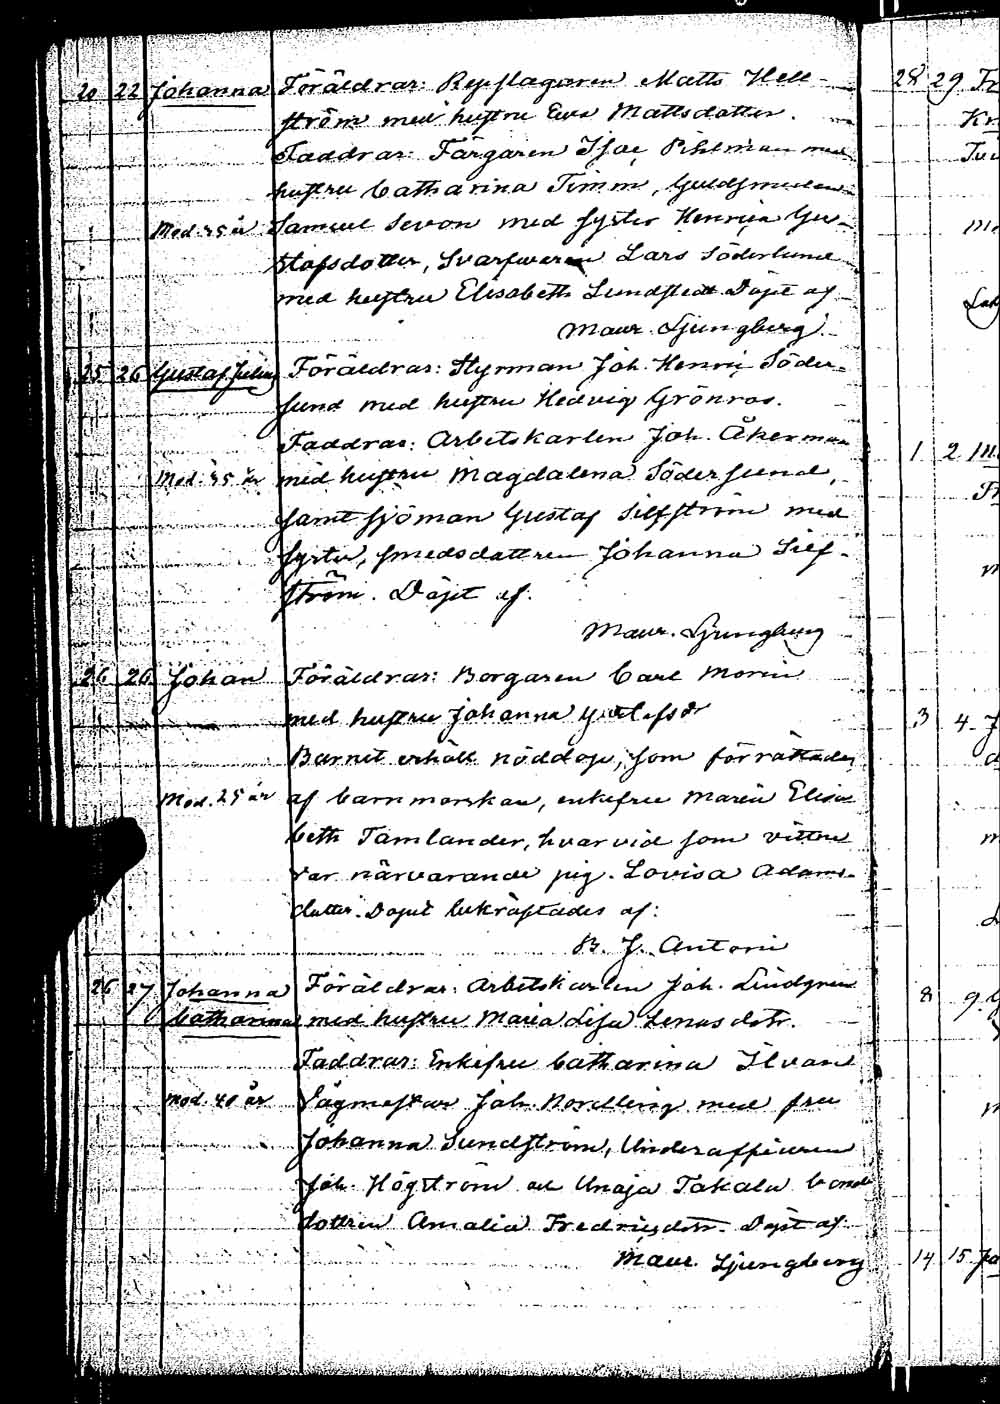 20 22 Johanna Föräldrar: Repslagaren Matts Hell-
ström med hustru Eva Mattsdotter.
Faddrar: Färgaren Isac Pihlman med
hustru Catharina Timm, Guldsmeden
Mod. 35 år Samuel Sevon med syster Henrica Gu-
stafsdotter, Svarfvaren Lars Söderlund
med hustru Elisabeth Lundstedt Döpt af
Maur. Ljungberg.
25 26 Gustaf Julius Föräldrar: Styrman Joh. Henric Söder-
lund med hustru Hedvig Grönros.
Faddrar: Arbetskarlen Joh. Åkerman
Mod. 35 år med hustru Magdalena Söderlund,
samt sjöman Gustaf Silfström med
syster, smedsdottren Johanna Silf-
ström. Döpt af.
Maur. Ljungberg
26 26 Johan Föräldrar: Borgaren Carl Morin
med hustru Johanna Gustafsdr
Barnet erhöll nöddop, som förrättades
Mod. 25 år af barnmorskan, enkefru Maria Elisa
beth Tamlander, hvarvid som vittne
var närvarande pig. Lovisa Adams-
dotter. Dopet bekräftades af:
B. J. Antoni
26 27 Johanna Föräldrar: Arbetskarlen Joh. Lindgren
Catharina med hustru Maria Lisa Lenasdotr.
Faddrar: Enkefru Catharina Ilvan
Mod. 40 år Vågmästar Joh. Nordling med fru
Johanna Sundström, Underofficeren
Joh. Högström och Unaja Takala bonde
dottren Amalia Fredricsdotr. Döpt af
Maur. Ljungberg
28 29
1 2
3 4
8 9
14 15